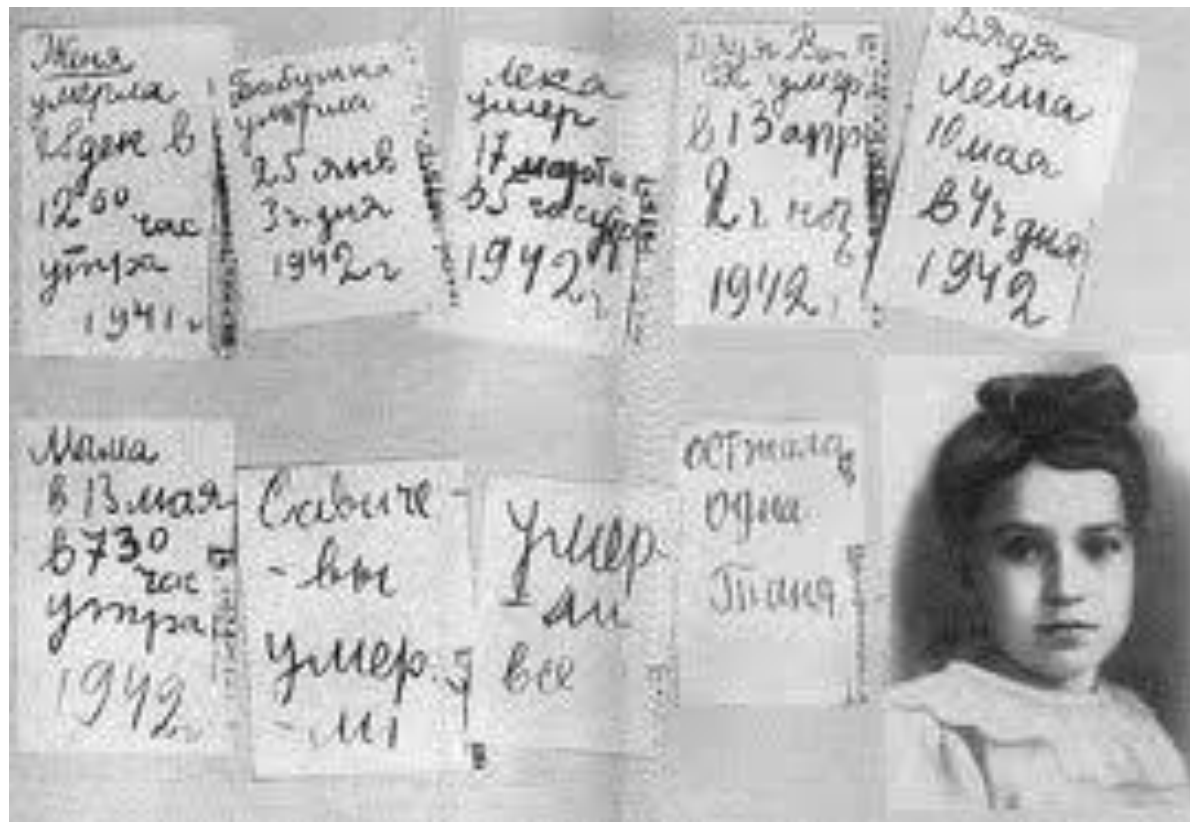 Женя
умерла
28 ден в
12 00 час
утра
1941 г
Бабушка
умерла
25 янв
3 ч. дня
1942 г
Лека
умер
17 марта
в 5 час утр
1942 г
Дядя Ва
ся умер
в 13 апр
2 ч ночь
1942 г
Дядя
Леша
10 мая
в 4 ч дня
1942
Мама
в 13 мая
в 7 30
час
утра
1942 г
Савиче-
-вы
умер.
-ли
Умер-
-ли
все
осталась
одна
Таня